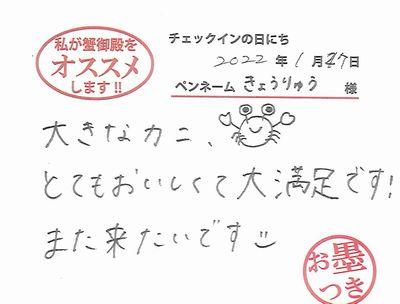 私が蟹御殿を
オススメ
します!!
チェックインの日にち
2022年1月27日
ペンネーム きょうりゅう 様
大きなカニ、
とてもおいしくて大満足です!
また来たいです
お墨
つき